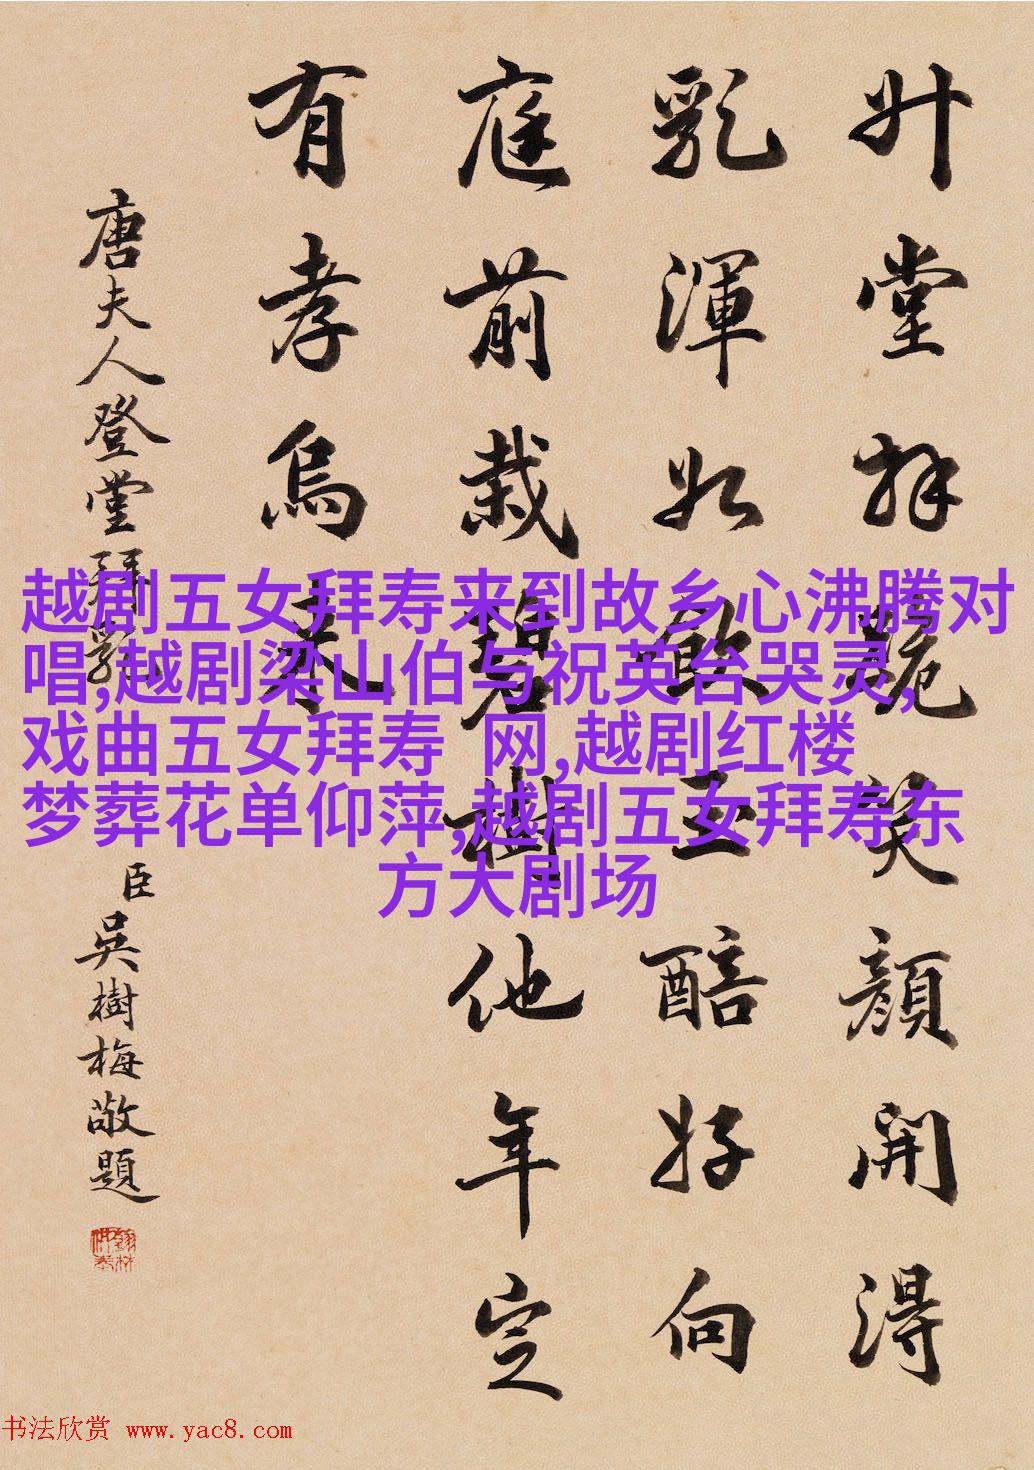 升堂拜跪笑顏開得
乳渾如飲玉醅好向
庭前栽碧樹他年定
有孝烏來
唐夫人登堂拜乳
臣吳樹梅敬題
越剧五女拜寿来到故乡心沸腾对
唱,越剧梁山伯与祝英台哭灵,
戏曲五女拜寿 网,越剧红楼
梦葬花单仰萍,越剧五女拜寿东
方大剧场
书法欣赏 www.yac8.com